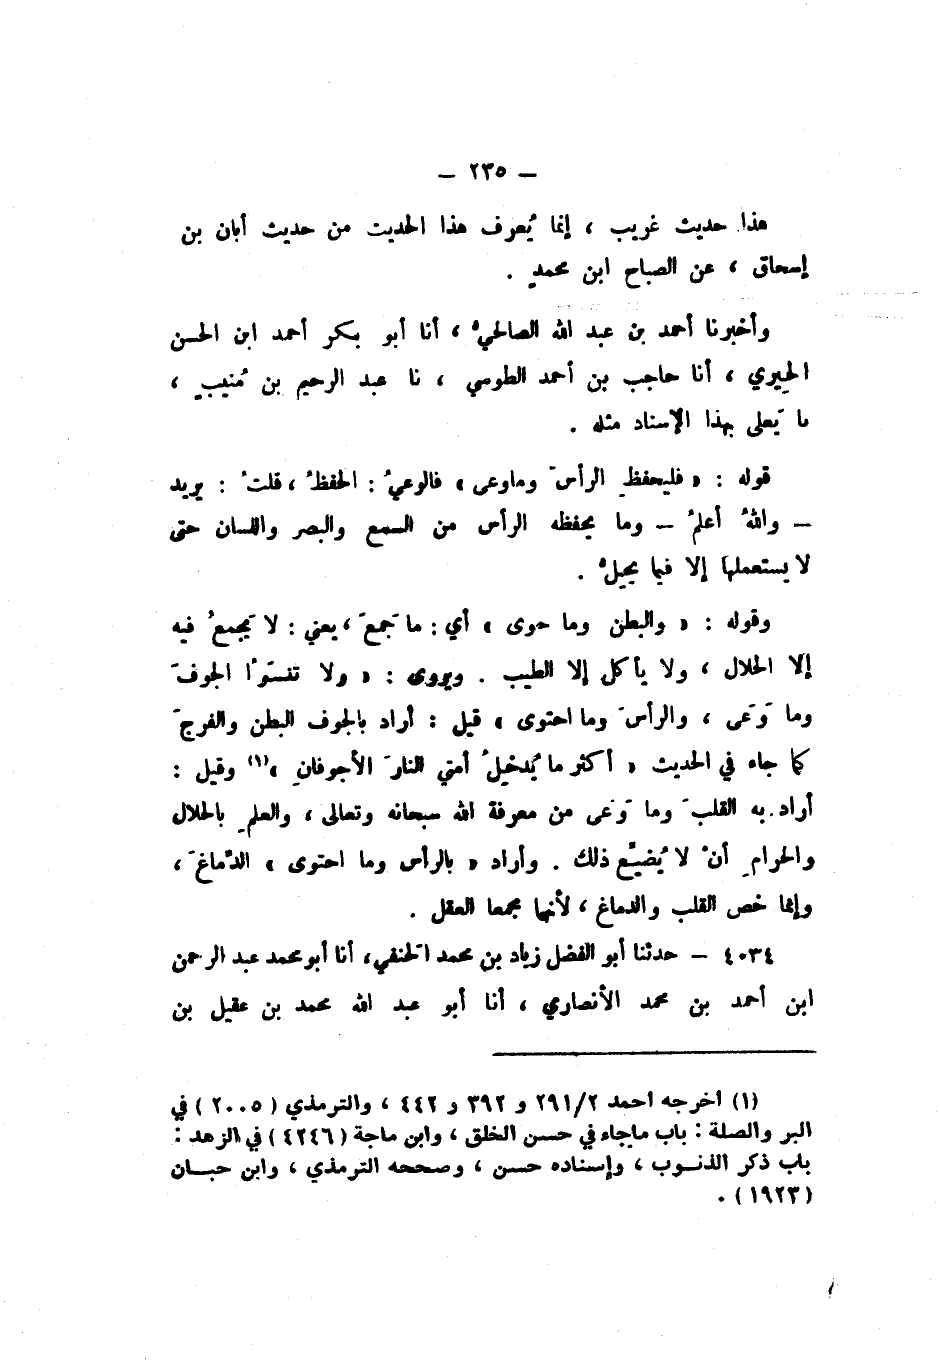 — ٢٣٥ —
هذا حديث غريب ، إنما يُعرف هذا الحديث من حديث أبان بن
إسحاق ، عن الصباح ابن محمدٍ .
وأخبرنا أحمد بن عبد الله الصالحيُّ ، أنا أبو بكر أحمد ابن الحسن
الحِيري ، أنا حاجب بن أحمد الطوسي ، نا عبد الرحيم بن مُنيبٍ ،
نا يَعلى بهذا الإسناد مثله .
قوله : « فليحفظِ الرأسَ وماوعى » فالوعيُ : الحفظُ ، قلتُ : يريد
— واللهُ أعلمُ — وما يحفظه الرأس من السمع والبصر واللسان حتى
لا يستعملها إلا فيما يحِلُّ .
وقوله : « والبطن وما حوى » أي : ما جَمعَ ، يعني : لا يَجمعُ فيه
إلا الحلال ، ولا يأكل إلا الطيب . ويروى : « ولا تنسَوُا الجوفَ
وما وَعَى ، والرأسَ وما احتوى » قيل : أراد بالجوف البطن والفرجَ
كما جاء في الحديث « أكثر ما يُدخِلُ أمتي النارَ الأجوفانِ »(١) وقيل :
أراد به القلبَ وما وَعى من معرفة الله سبحانه وتعالى ، والعلمِ بالحلال
والحرامِ أنْ لا يُضيَّع ذلك . وأراد « بالرأس وما احتوى » الدِّماغَ ،
وإنما خص القلب والدماغ ، لأنها مجمعا العقل .
٤٠٣٤ — حدثنا أبو الفضل زياد بن محمد الحنفي ، أنا أبو محمد عبد الرحمن
ابن أحمد بن محمد الأنصاري ، أنا أبو عبد الله محمد بن عقيل بن
(١) أخرجه أحمد ٢٩١/٢ و ٣٩٢ و ٤٤٢ ، والترمذي ( ٢٠٠٥ ) في
البر والصلة : باب ماجاء في حسن الخلق ، وابن ماجة ( ٤٢٤٦ ) في الزهد :
باب ذكر الذنوب ، وإسناده حسن ، وصححه الترمذي ، وابن حبان
( ١٩٢٣ ) .